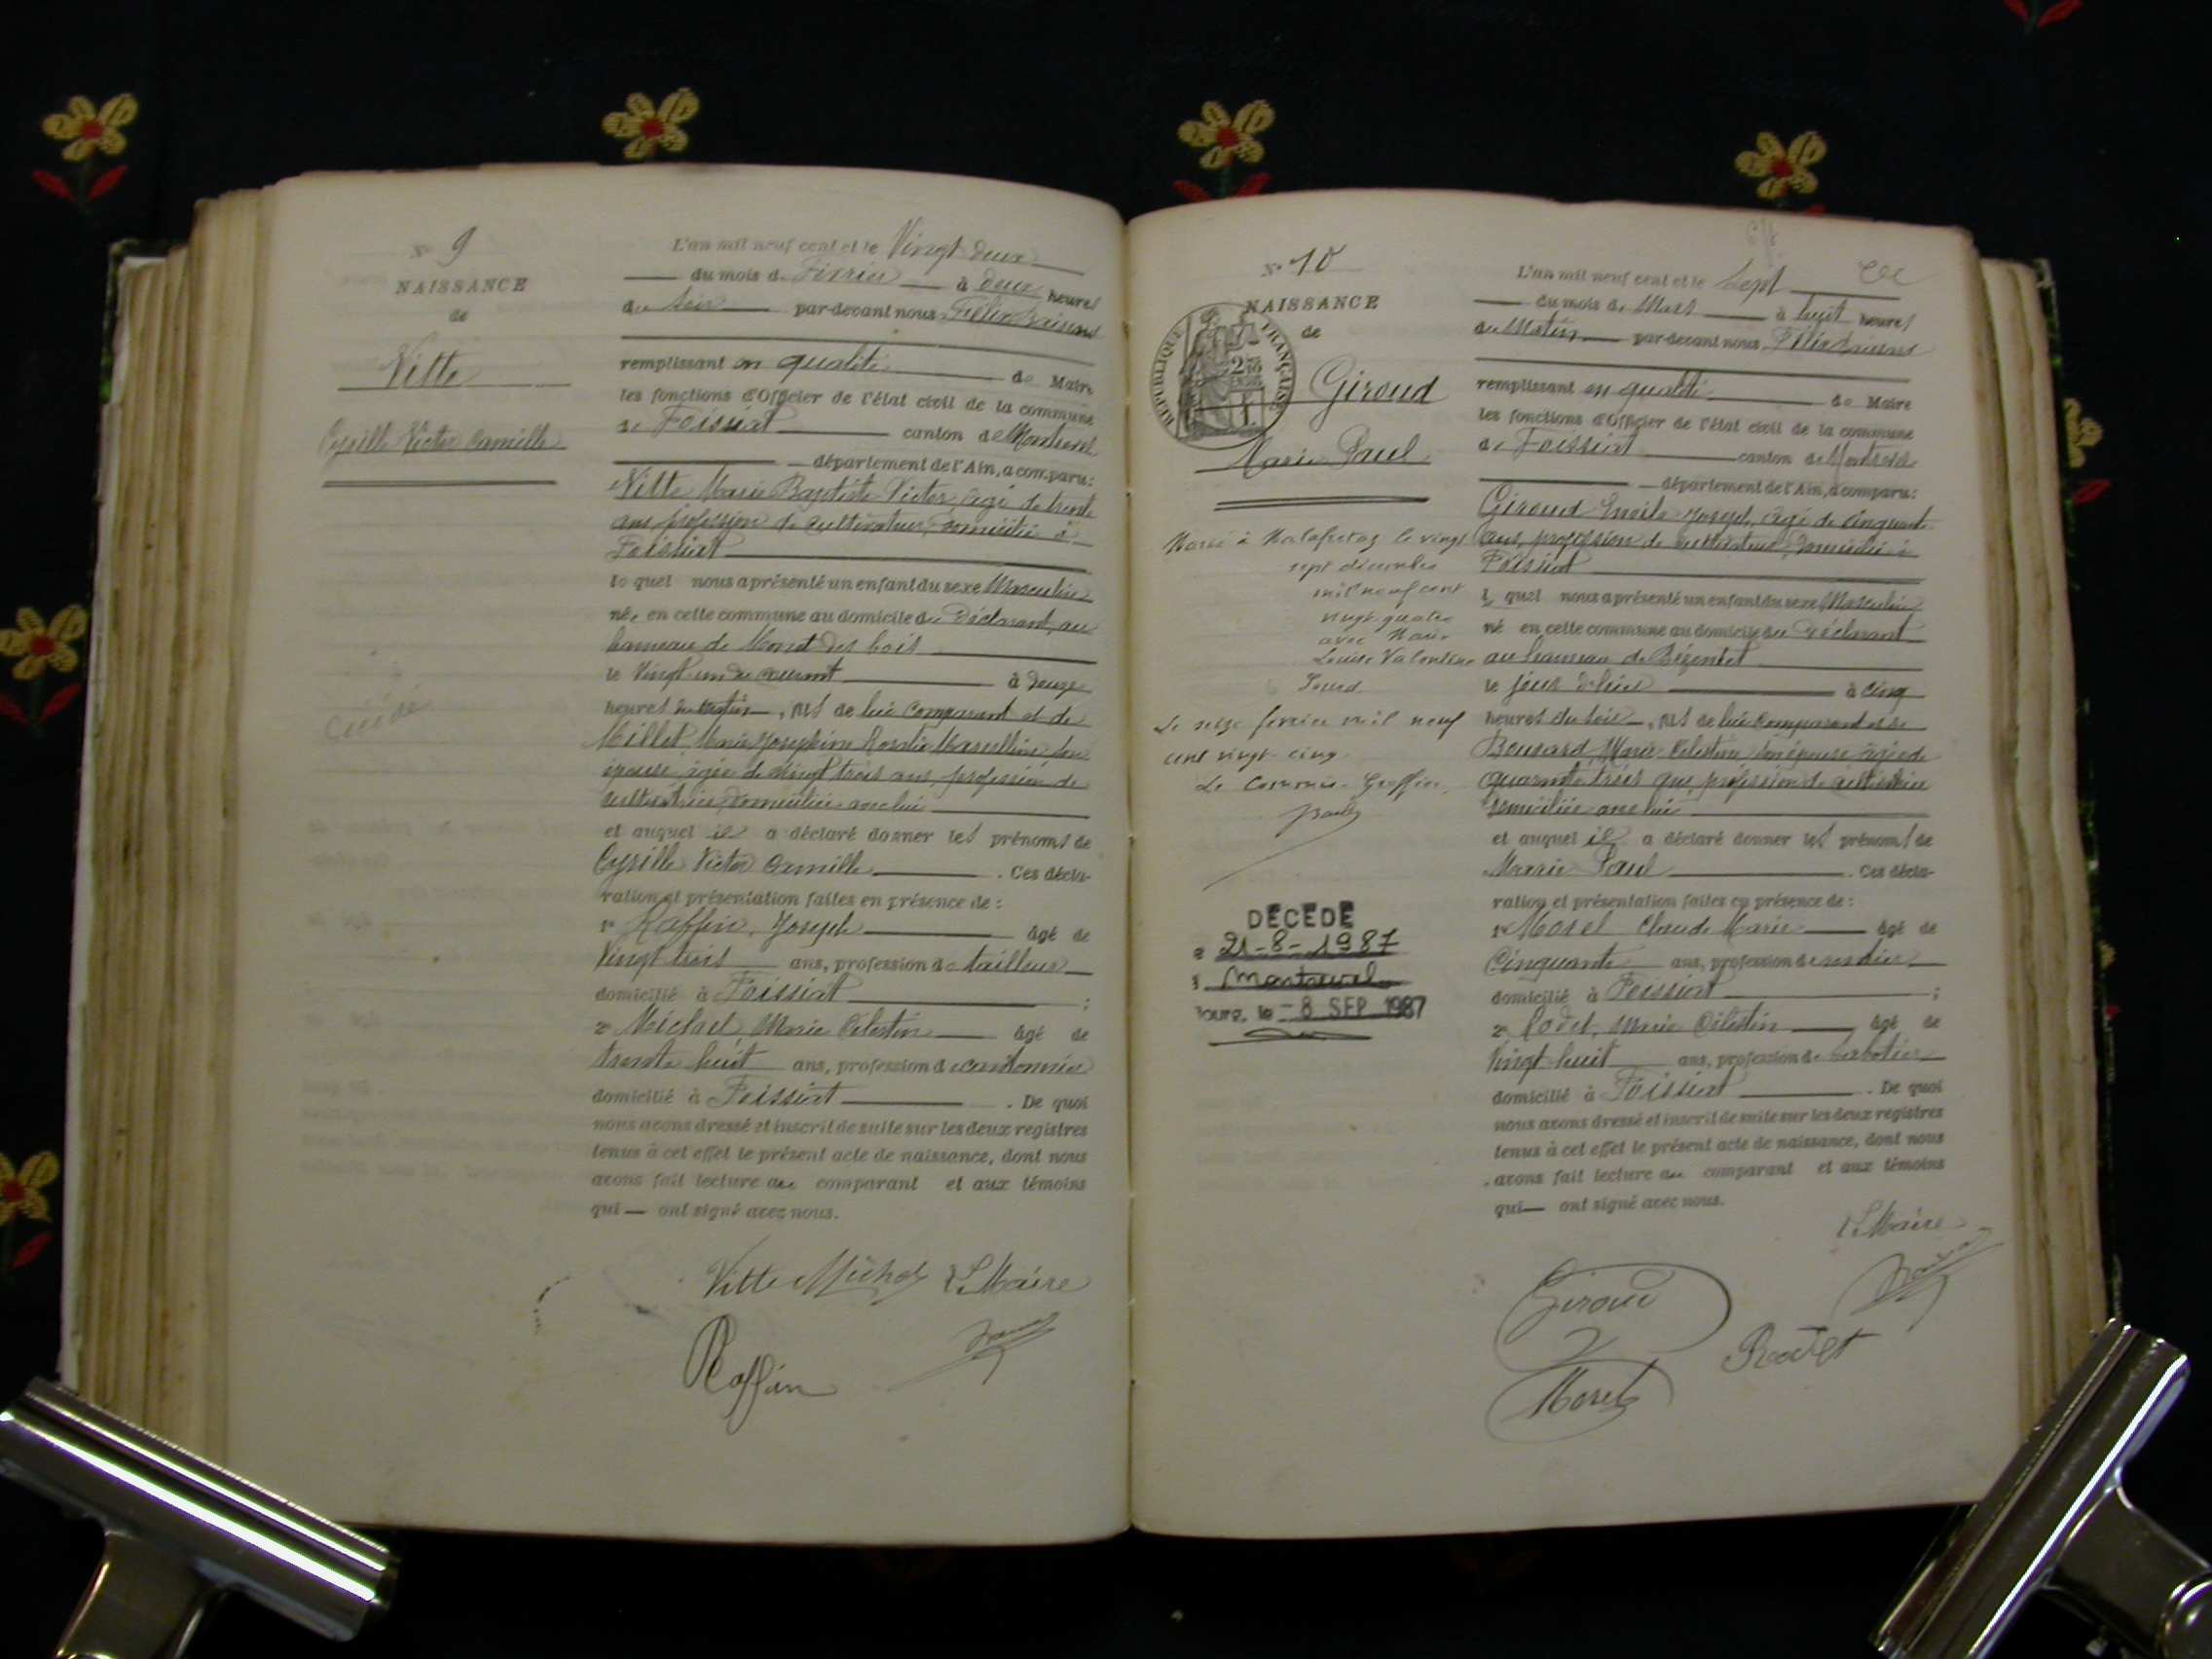 N° 9
NAISSANCE
de
Vitte
Cyrille Victor Camille
L'an mil neuf cent et le Vingt deux
du mois de Février à deux heures
du soir par-devant nous Félix
remplissant en qualité de Maire
les fonctions d'Officier de l'état civil de la commune
de Foissiat canton de Montrevel
département de l'Ain, a comparu:
Vitte Marie Baptiste Victor, âgé de trente
ans, profession de cultivateur, domicilié à
Foissiat
lequel nous a présenté un enfant du sexe Masculin
né, en cette commune au domicile du Déclarant, au
hameau de des bois
le Vingt un du courant à
heures du matin, fils de lui comparant et de
Millet Marie Joséphine Rosalie Marcelline son
épouse âgée de vingt trois ans, profession de
cultivatrice, domiciliée avec lui
et auquel il a déclaré donner les prénoms de
Cyrille Victor Camille. Ces décla-
ration et présentation faites en présence de:
1° Raffin, Joseph âgé de
Vingt trois ans, profession de tailleur
domicilié à Foissiat;
2° Michel Marie Célestin âgé de
trente huit ans, profession de
domicilié à Foissiat. De quoi
nous avons dressé et inscrit de suite sur les deux registres
tenus à cet effet le présent acte de naissance, dont nous
avons fait lecture au comparant et aux témoins
qui — ont signé avec nous.
Vitte Michel Le Maire
Raffin
N° 10
NAISSANCE
de
RÉPUBLIQUE FRANÇAISE
Giroud
Marie Paul
Marié à Malafretaz le vingt
sept décembre
mil neuf cent
vingt quatre
avec Marie
Louise Valentine
Le seize février mil neuf
cent vingt cinq
Le Commis Greffier,
DECEDE
21-8-1987
Montrevel
Bourg, le - 8 SEP 1987
L'an mil neuf cent et le Sept
du mois de Mars à huit heures
du Matin par-devant nous, Félix
remplissant en qualité de Maire
les fonctions d'Officier de l'état civil de la commune
de Foissiat canton de Montrevel
département de l'Ain, a comparu:
Giroud Joseph, âgé de cinquante
ans, profession de cultivateur, domicilié à
Foissiat
lequel nous a présenté un enfant du sexe Masculin
né en cette commune au domicile du Déclarant
au hameau de
le jour d'hier à cinq
heures du soir, fils de lui comparant et de
Marie son épouse âgée de
quarante trois ans, profession de cultivatrice
domiciliée avec lui
et auquel il a déclaré donner les prénoms de
Marie Paul. Ces décla-
ration et présentation faites en présence de:
1° Morel Claude Marie âgé de
Cinquante ans, profession de
domicilié à Foissiat;
2° Marie Célestin âgé de
Vingt huit ans, profession de sabotier
domicilié à Foissiat. De quoi
nous avons dressé et inscrit de suite sur les deux registres
tenus à cet effet le présent acte de naissance, dont nous
avons fait lecture au comparant et aux témoins
qui — ont signé avec nous.
Le Maire
Giroud
Morel